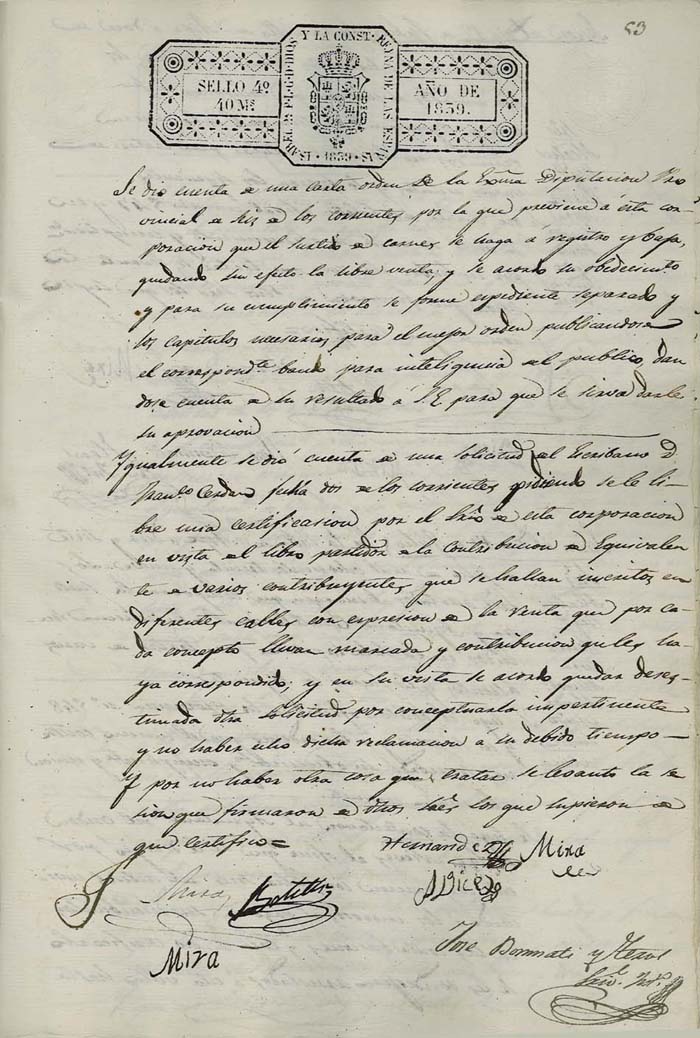 53
ISABEL 2ª P. L. G. D. DIOS Y LA CONST. REYNA DE LAS ESPAÑAS
1839
SELLO 4º
40 Ms.
AÑO DE
1839.
Se dio cuenta de una carta orden de la Exma Diputacion Pro
vincial de seis de los corrientes por la que previene á esta cor
poracion que el surtido de carnes se haga á registro y baja,
quedando sin efecto la libre venta; y se acordó su obedecimto
y para su cumplimiento se forme espediente separado y
los capitulos necesarios para el mejor orden publicandose
el correspondte bando para inteligencia del publico dan
dose cuenta de su resultado á S.E. para que se sirva darle
su aprovacion
Ygualmente se dió cuenta de una solicitud del Escribano D.
Franco Cerdan fecha dos de los corrientes pidiendo se le li
bre una certificasion por el Srio de esta corporacion
en vista del libro partidor de la Contribucion de Equivalen
te de varios contribuyentes que se hallan inscritos en
diferentes calles con expresion de la venta que por ca
da concepto llevan marcada y contribucion qe les ha
ya correspondido; y en su vista se acordó quedar deses
timada dha solicitud por conceptuarla impertinente
y no haber sido dicha reclamacion á su debido tiempo
Y por no haber otra cosa que tratar se levantó la se
sion que firmaron de dhos Sres los que supieron de
que Certifico=
Hernandez
Mira
Mira
Botella
Mira
Jose Bonmati y